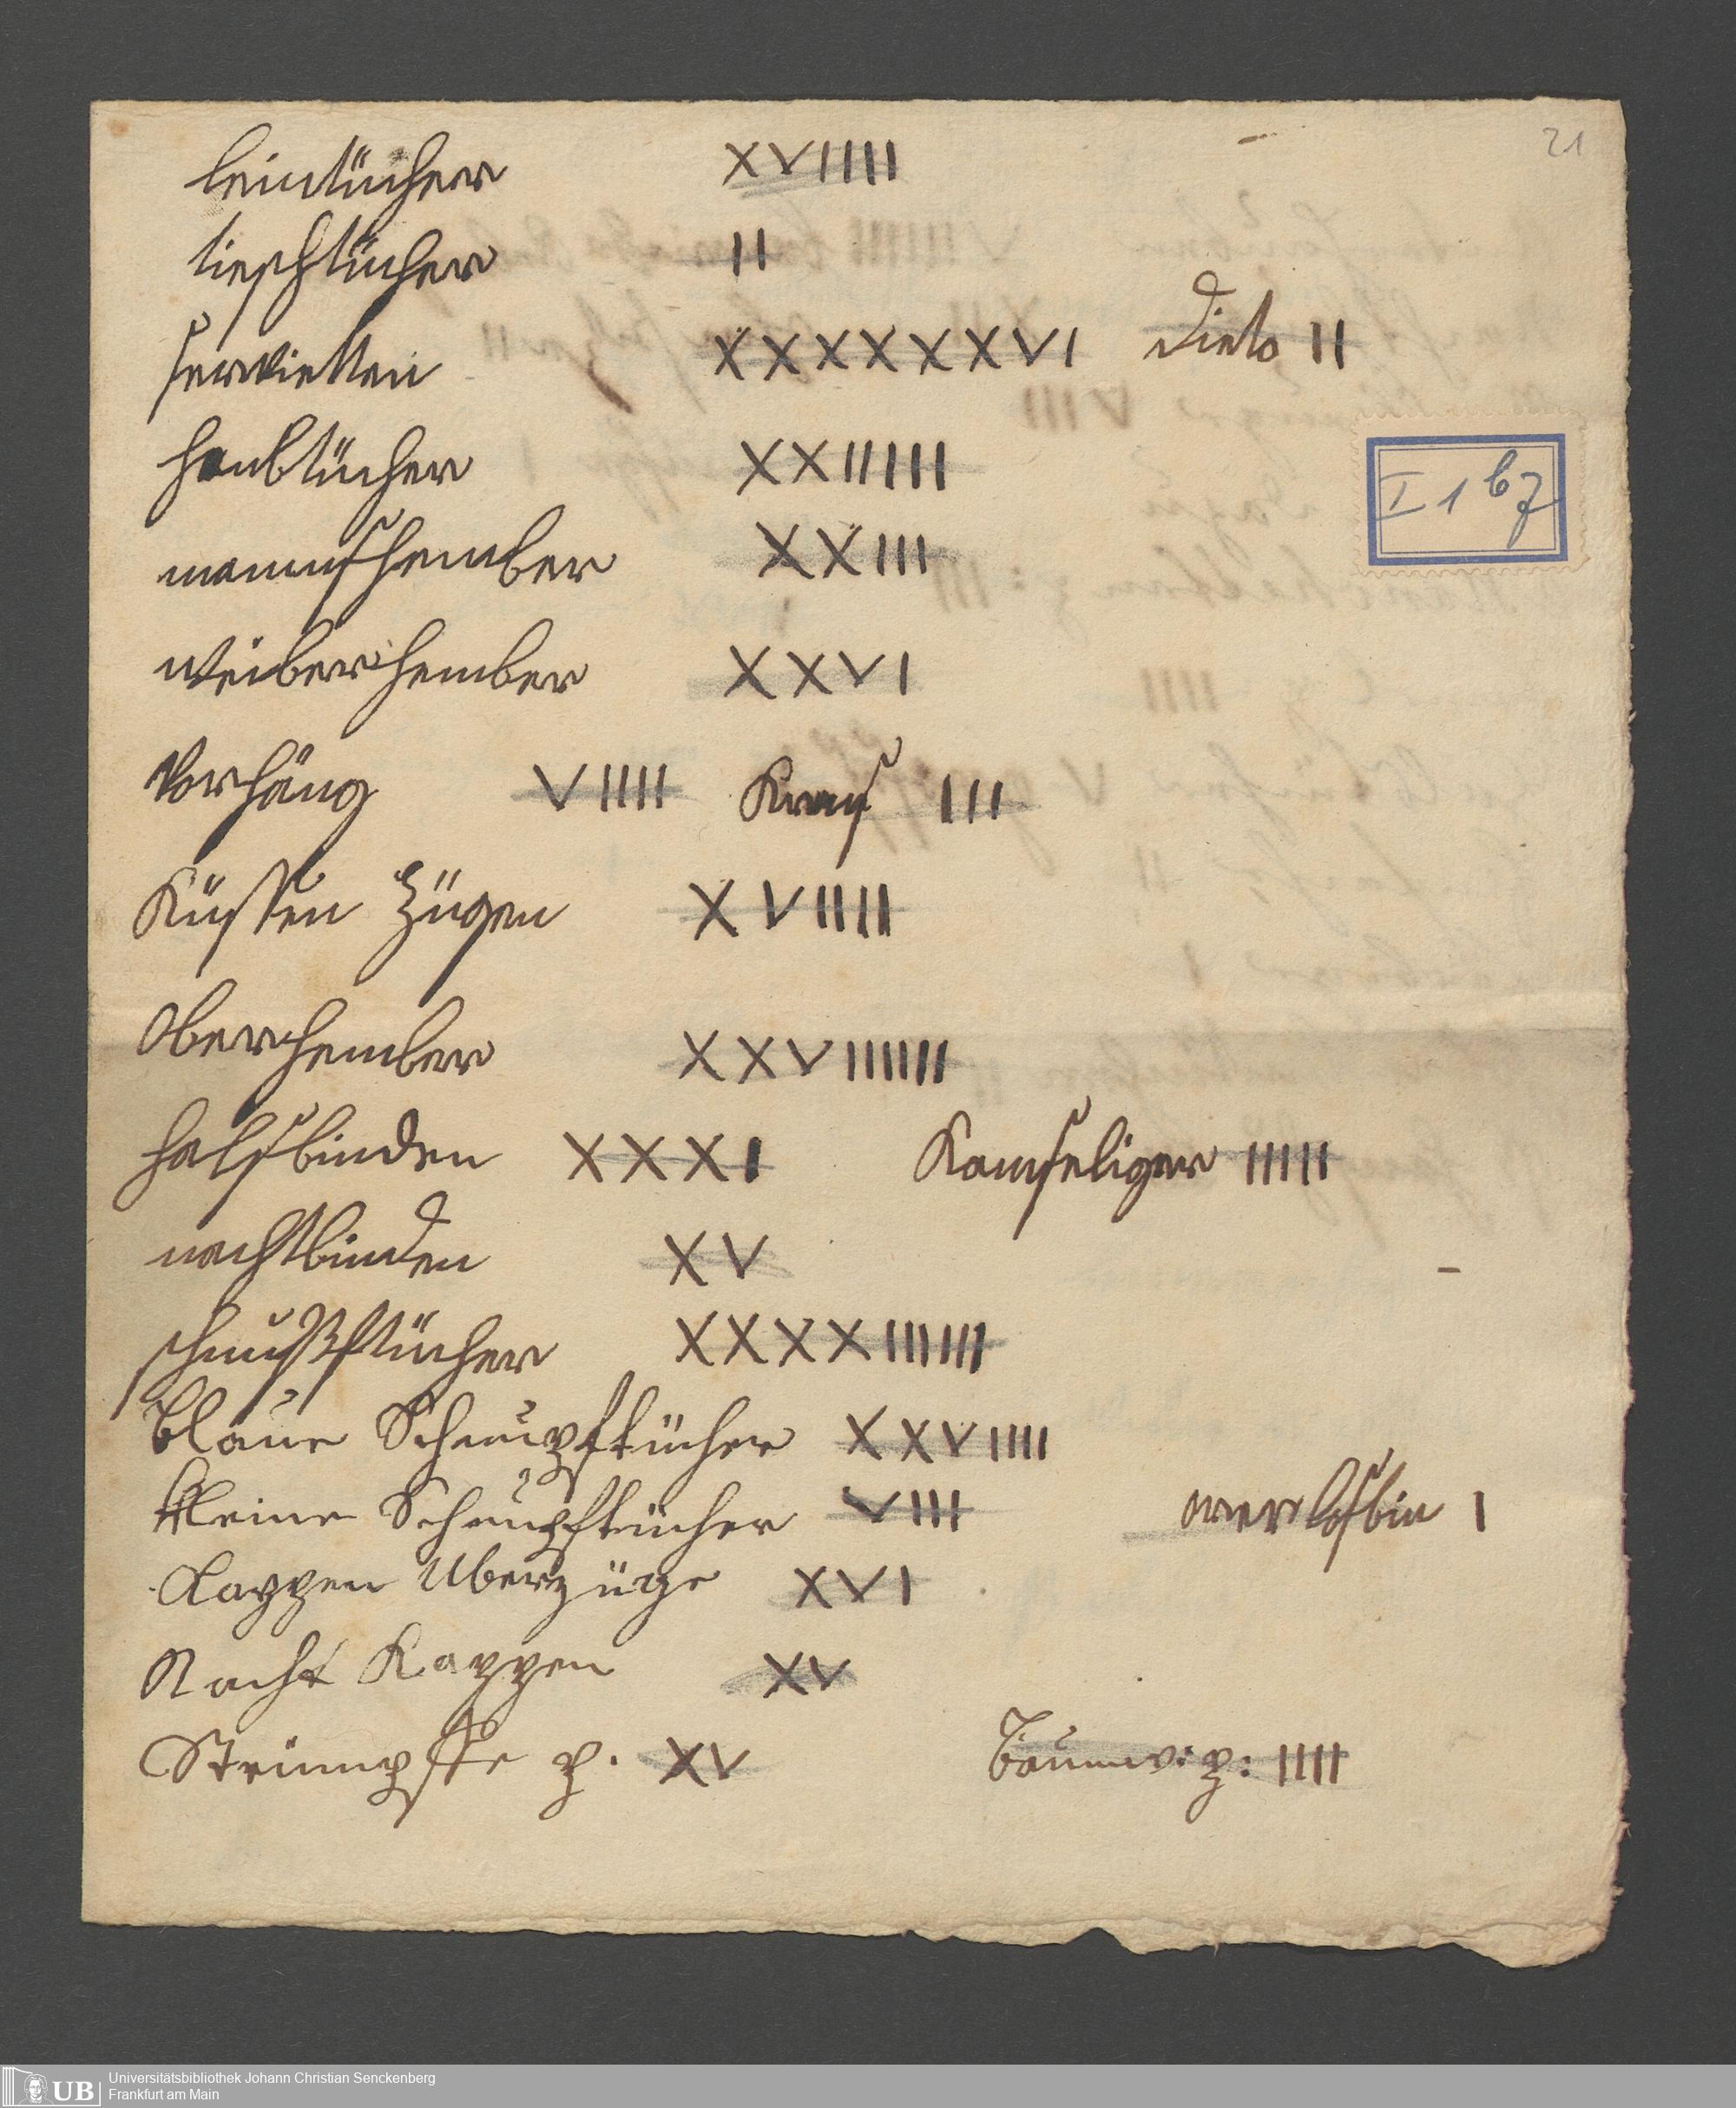 21
leintücher XVIIII
tieschtücher II
servietten XXXXXXVI Dieto II
handtücher XXIIIIII
mannshember XXIII
weiberhember XXVI
Vorhäng VIIII Kraus III
Küssen Zügen XVIIII
Oberhember XXVIIIIII
halsbinden XXXI Kamseliger IIIII
nachtbinden XV
schnupftücher XXXXIIIIII
Blaue Schnupftücher XXVIIII
Kleine Schnupftücher VIII I
Kappen Uberzüge XVI
Nacht Kappen XV
Strümpffe p. XV Baumw: p: IIII
I 1 b 7
UB
Universitätsbibliothek Johann Christian Senckenberg
Frankfurt am Main